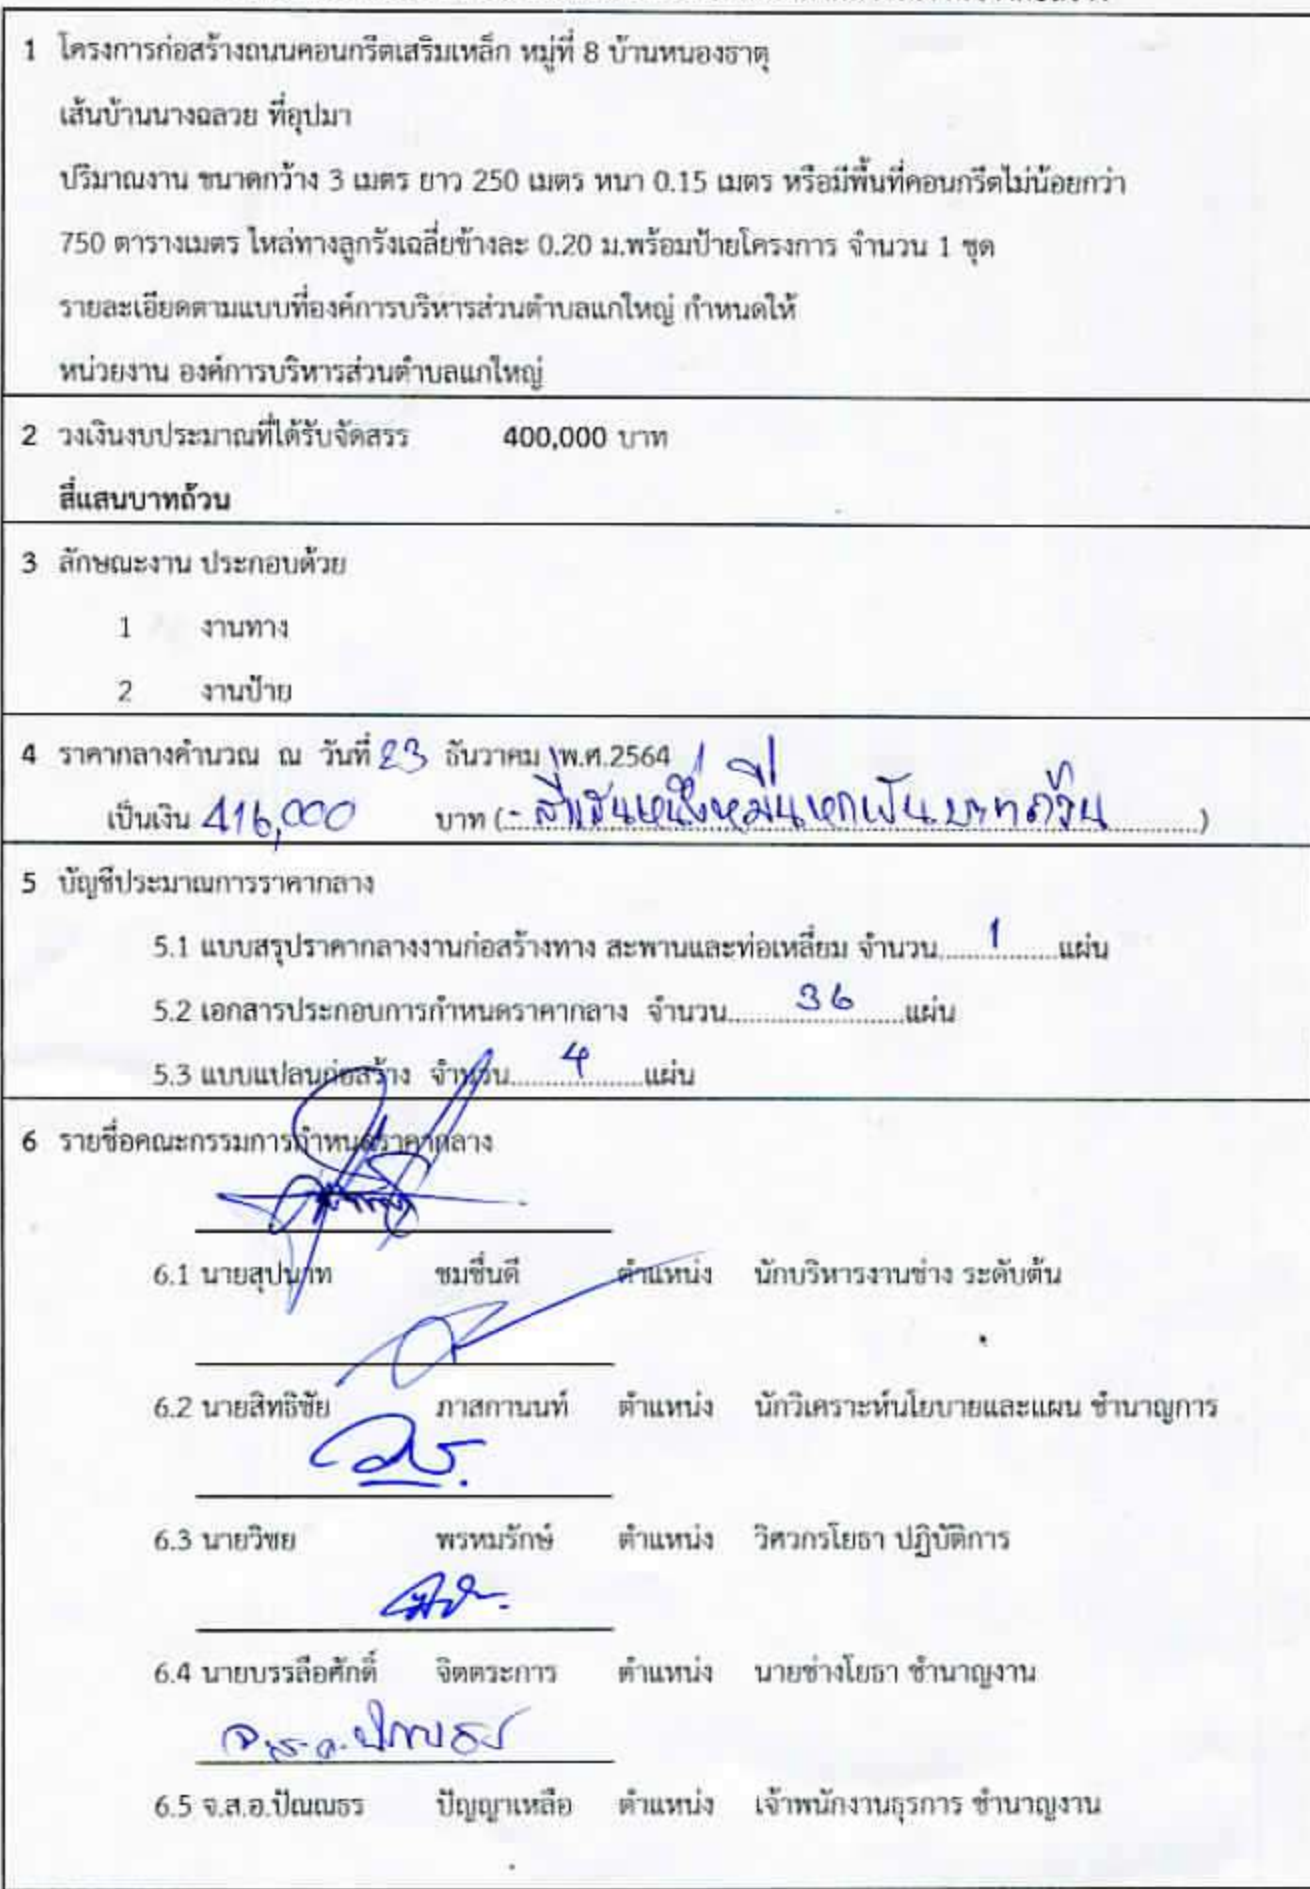 1 โครงการก่อสร้างถนนคอนกรีตเสริมเหล็ก หมู่ที่ 8 บ้านหนองธาตุ
เส้นบ้านนางฉลวย ที่อุปมา
ปริมาณงาน ขนาดกว้าง 3 เมตร ยาว 250 เมตร หนา 0.15 เมตร หรือมีพื้นที่คอนกรีตไม่น้อยกว่า
750 ตารางเมตร ไหล่ทางลูกรังเฉลี่ยข้างละ 0.20 ม.พร้อมป้ายโครงการ จำนวน 1 ชุด
รายละเอียดตามแบบที่องค์การบริหารส่วนตำบลแกใหญ่ กำหนดให้
หน่วยงาน องค์การบริหารส่วนตำบลแกใหญ่
2 วงเงินงบประมาณที่ได้รับจัดสรร 400,000 บาท
สี่แสนบาทถ้วน
3 ลักษณะงาน ประกอบด้วย
1 งานทาง
2 งานป้าย
4 ราคากลางคำนวณ ณ วันที่ 23 ธันวาคม พ.ศ.2564
เป็นเงิน 416,000 บาท (- สี่แสนหนึ่งหมื่นหกพันบาทถ้วน )
5 บัญชีประมาณการราคากลาง
5.1 แบบสรุปราคากลางงานก่อสร้างทาง สะพานและท่อเหลี่ยม จำนวน 1 แผ่น
5.2 เอกสารประกอบการกำหนดราคากลาง จำนวน 36 แผ่น
5.3 แบบแปลนก่อสร้าง จำนวน 4 แผ่น
6 รายชื่อคณะกรรมการกำหนดราคากลาง
6.1 นายสุปนาท ชมชื่นดี ตำแหน่ง นักบริหารงานช่าง ระดับต้น
6.2 นายสิทธิชัย ภาสกานนท์ ตำแหน่ง นักวิเคราะห์นโยบายและแผน ชำนาญการ
6.3 นายวิชย พรหมรักษ์ ตำแหน่ง วิศวกรโยธา ปฏิบัติการ
6.4 นายบรรลือศักดิ์ จิตตระการ ตำแหน่ง นายช่างโยธา ชำนาญงาน
6.5 จ.ส.อ.ปัณณธร ปัญญาเหลือ ตำแหน่ง เจ้าพนักงานธุรการ ชำนาญงาน